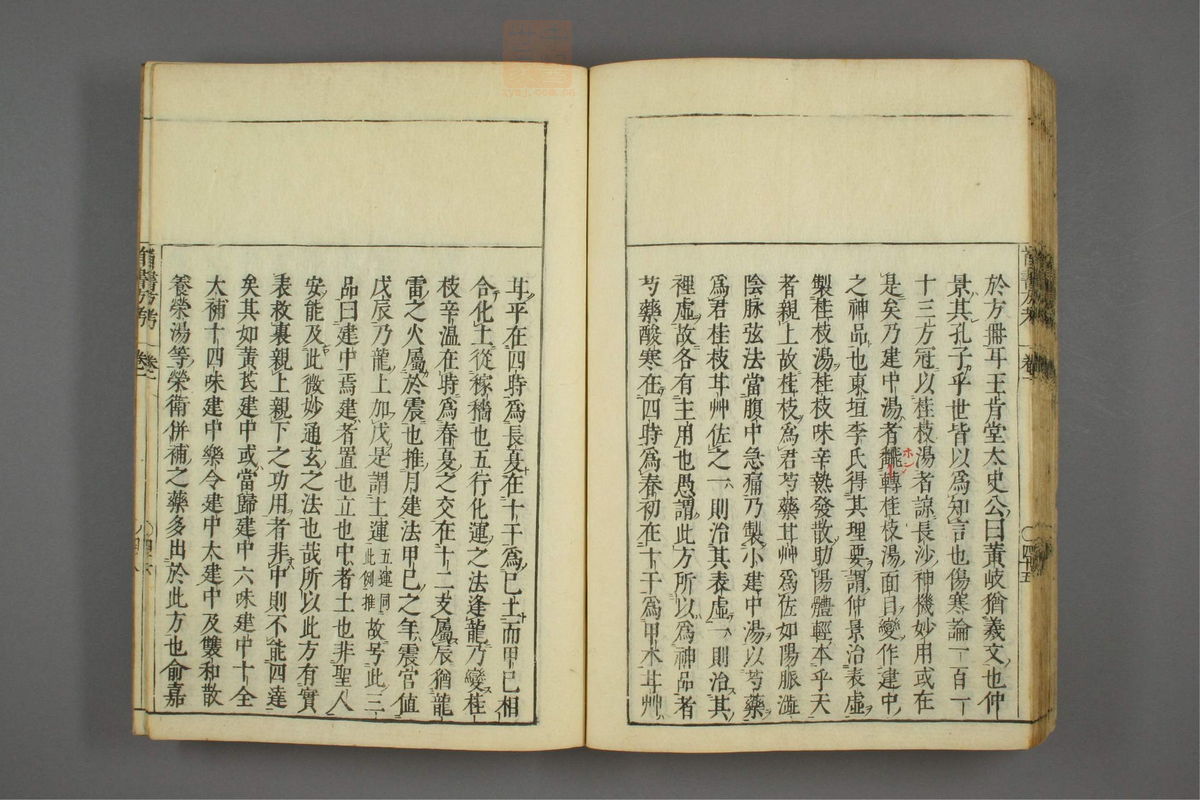 於方冊耳王肯堂太史公曰黃岐猶羲文也仲
景其孔子乎世皆以為知言也傷寒論一百一
十三方冠以桂枝湯者諒長沙神機妙用或在
是矣乃建中湯者飜轉桂枝湯面目變作建中
之神品也東垣李氏得其理要謂仲景治表虛
製桂枝湯桂枝味辛熱發散助陽體輕本乎天
者親上故桂枝為君芍藥甘艸為佐如陽脈濇
陰脉弦法當腹中急痛乃製小建中湯以芍藥
為君桂枝甘艸佐之一則治其表虛一則治其
裡虛故各有主用也愚謂此方所以為神品者
芍藥酸寒在四時為春初在十干為甲木甘艸
卷
四十五
甘平在四時為長夏在十干為己土而甲己相
合化土從稼穡也五行化運之法逢龍乃變桂
枝辛溫在時為春夏之交在十二支屬辰猶龍
雷之火屬於震也推月建法甲己之年震宮值
戊辰乃龍上加戊是謂土運五運同此例推故号此三
品曰建中焉建者置也立也中者土也非聖人
安能及此微妙通玄之法也哉所以此方有實
表救裏親上親下之功用者非中則不能四達
矣其如黃芪建中或當歸建中六味建中十全
大補十四味建中樂令建中大建中及雙和散
養榮湯等榮衛併補之藥多出於此方也俞嘉
書方考
卷